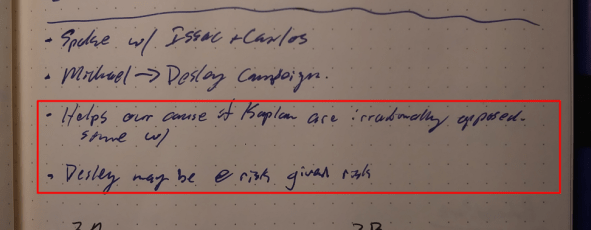 • Spoke w/ Issac + Carlos
• Michael → Desley Campaign.
• Helps our cause if Kaplan are irrationally opposed.
same w/
• Desley may be @ risk given risk